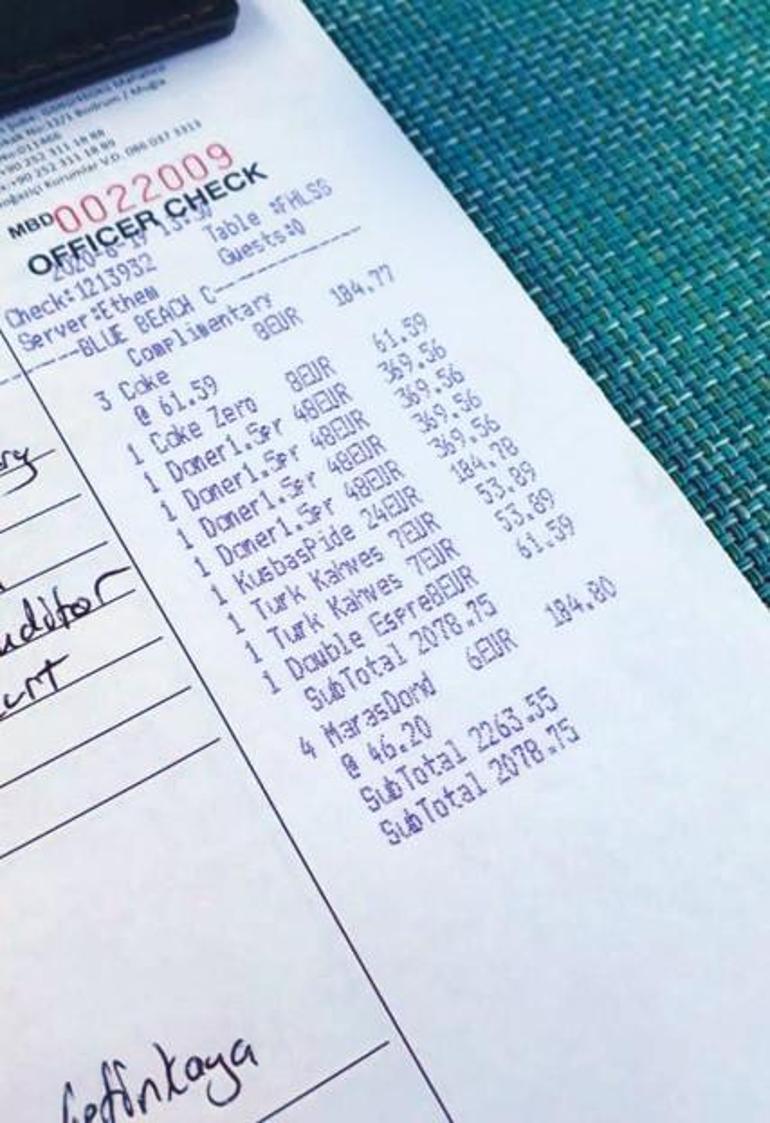 No:13/1 Bodrum / Muğla
+90 252 311 18 88
+90 252 311 18 89
Kurumlar V.D. 086 037 3313
MBD 0022009
OFFICER CHECK
Check:1213932 Table :FHLSS
Server:Ethem Guests:0
BLUE BEACH C
Complimentary
3 Coke 8EUR 184.77
@ 61.59
1 Coke Zero 8EUR 61.59
1 Doner1.5pr 48EUR 369.56
1 Doner1.5pr 48EUR 369.56
1 Doner1.5pr 48EUR 369.56
1 Doner1.5pr 48EUR 369.56
1 KusbasPide 24EUR 184.78
1 Turk Kahves 7EUR 53.89
1 Turk Kahves 7EUR 53.89
1 Double Espre8EUR 61.59
SubTotal 2078.75
4 MarasDond 6EUR 184.80
@ 46.20
SubTotal 2263.55
SubTotal 2078.75